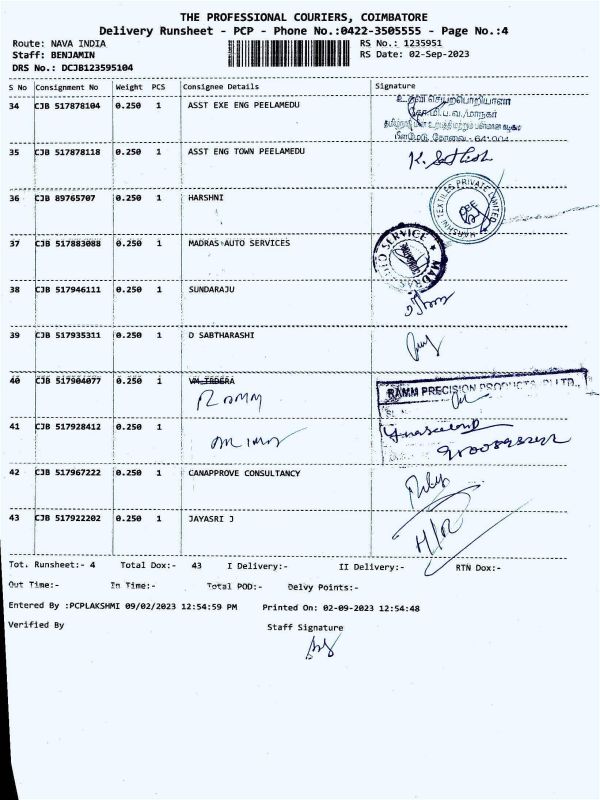 THE PROFESSIONAL COURIERS, COIMBATORE
Delivery Runsheet - PCP - Phone No.:0422-3505555 - Page No.:4
Route: NAVA INDIA RS No.: 1235951
Staff: BENJAMIN RS Date: 02-Sep-2023
DRS No.: DCJB123595104
S No Consignment No Weight PCS Consignee Details Signature
34 CJB 517878104 0.250 1 ASST EXE ENG PEELAMEDU
35 CJB 517878118 0.250 1 ASST ENG TOWN PEELAMEDU
K. Sathish
36 CJB 89765707 0.250 1 HARSHNI
HARSHNI TEXTILES PRIVATE LIMITED
37 CJB 517883088 0.250 1 MADRAS AUTO SERVICES
MADRAS AUTO SERVICE
38 CJB 517946111 0.250 1 SUNDARAJU
39 CJB 517935311 0.250 1 D SABTHARASHI
40 CJB 517904077 0.250 1
RAMM
RAMM PRECISION PRODUCTS (P) LTD.,
41 CJB 517928412 0.250 1
42 CJB 517967222 0.250 1 CANAPPROVE CONSULTANCY
43 CJB 517922202 0.250 1 JAYASRI J
H/R
Tot. Runsheet:- 4 Total Dox:- 43 I Delivery:- II Delivery:- RTN Dox:-
Out Time:- In Time:- Total POD:- Delvy Points:-
Entered By :PCPLAKSHMI 09/02/2023 12:54:59 PM Printed On: 02-09-2023 12:54:48
Verified By Staff Signature